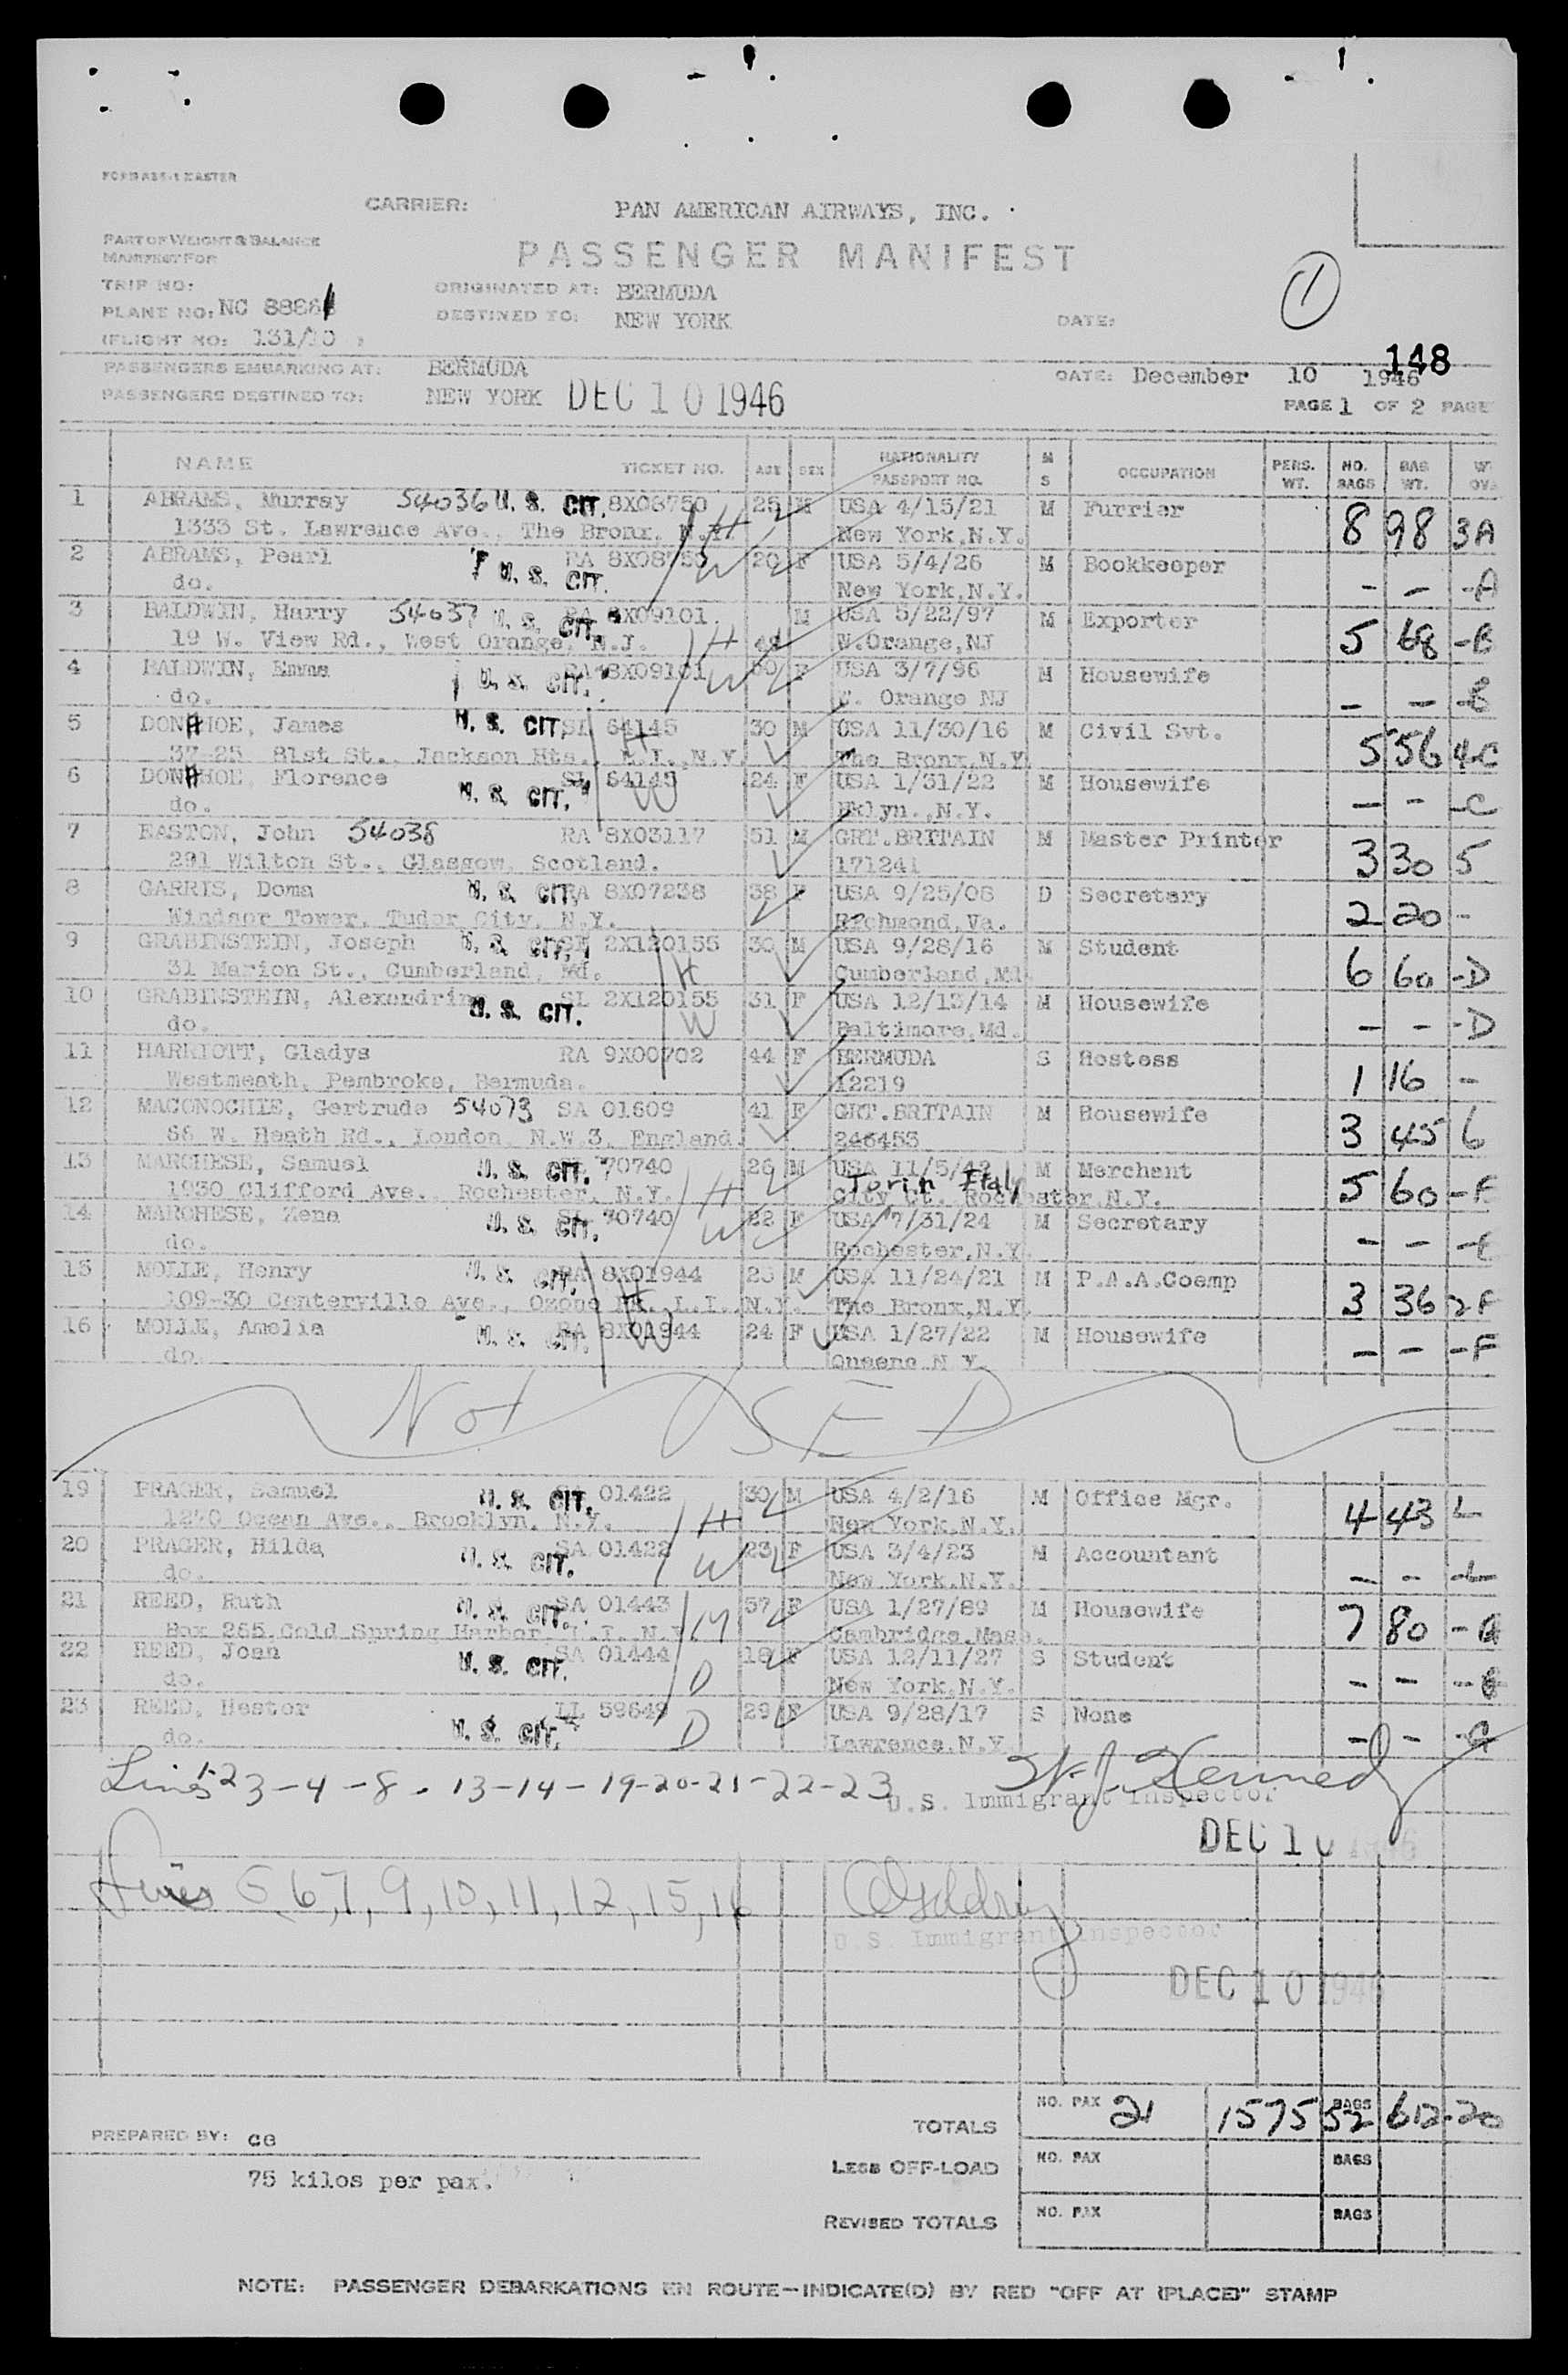 CARRIER: PAN AMERICAN AIRWAYS, INC.
PART OF WEIGHT & BALANCE
MANIFEST FOR
PASSENGER MANIFEST
TRIP NO:
ORIGINATED AT: BERMUDA
1
PLANE NO: NC
DESTINED TO: NEW YORK
DATE:
FLIGHT NO: 131/10
148
PASSENGERS EMBARKING AT: BERMUDA
DATE: December 10 1946
PASSENGERS DESTINED TO: NEW YORK DEC 10 1946
PAGE 1 OF 2 PAGE
NAME TICKET NO. AGE SEX NATIONALITY PASSPORT NO. M S OCCUPATION PERS. WT. NO. BAGS BAG WT.
1 ABRAMS, Murray 54036 U. S. CIT. 8X08750 25 M USA 4/15/21 M Furrier 8 98 3A
1333 St. Lawrence Ave., The Bronx, N.Y. H New York,N.Y.
2 ABRAMS, Pearl U. S. CIT. RA 8X08750 20 F USA 5/4/26 M Bookkeeper - - -A
do. W New York,N.Y.
3 BALDWIN, Harry 54037 U. S. CIT. RA 8X09101 M USA 5/22/97 M Exporter 5 68 -B
19 W. View Rd., West Orange, N.J. H 49 W.Orange,NJ
4 BALDWIN, Emma U. S. CIT. RA 8X09101 50 F USA 3/7/96 M Housewife - - -B
do. W Orange NJ
5 DONAHOE, James U. S. CIT. SL 64145 30 M USA 11/30/16 M Civil Svt. 5 56 4C
37-25 81st St., Jackson Hts., L.I.,N.Y. H The Bronx,N.Y.
6 DONAHOE, Florence U. S. CIT. SL 64145 24 F USA 1/31/22 M Housewife - - -C
do. W Bklyn.,N.Y.
7 EASTON, John 54038 RA 8X03117 51 M GRT.BRITAIN M Master Printer 3 30 5
291 Wilton St., Glasgow, Scotland. 171241
8 GARRIS, Doma U. S. CIT. RA 8X07238 38 F USA 9/25/08 D Secretary 2 20 -
Windsor Tower, Tudor City, N.Y. Richmond,Va.
9 GRABINSTEIN, Joseph U. S. CIT. SL 2X120155 30 M USA 9/28/16 M Student 6 60 -D
31 Marion St., Cumberland, Md. H Cumberland,Md.
10 GRABINSTEIN, Alexandrin U. S. CIT. SL 2X120155 31 F USA 12/13/14 M Housewife - - -D
do. W Baltimore,Md.
11 HARRIOTT, Gladys RA 9X00702 44 F BERMUDA S Hostess 1 16 -
Westmeath, Pembroke, Bermuda. 12219
12 MACONOCHIE, Gertrude 54073 SA 01609 41 F GRT.BRITAIN M Housewife 3 45 6
66 W. Heath Rd., London, N.W.3, England. 246453
13 MARCHESE, Samuel U. S. CIT. 70740 26 M USA 11/5/42 M Merchant 5 60 -E
Torin Italy
1930 Clifford Ave., Rochester, N.Y. H City Ct. Rochester,N.Y.
14 MARCHESE, Zena U. S. CIT. SL 70740 22 F USA 7/31/24 M Secretary - - -E
do. W Rochester,N.Y.
15 MOLLE, Henry U. S. CIT. RA 8X01944 25 M USA 11/24/21 M P.A.A.Coemp 3 36 2F
109-30 Centerville Ave., Ozone Pk. L.I., N.Y. H The Bronx,N.Y.
16 MOLLE, Amelia U. S. CIT. RA 8X01944 24 F USA 1/27/22 M Housewife - - -F
do. W Queens N.Y.
NOT USED
19 PRAGER, Samuel U. S. CIT. SA 01422 30 M USA 4/2/16 M Office Mgr. 4 43 L
1270 Ocean Ave., Brooklyn, N.Y. H New York,N.Y.
20 PRAGER, Hilda U. S. CIT. SA 01422 23 F USA 3/4/23 M Accountant - - -L-
do. W New York,N.Y.
21 REED, Ruth U. S. CIT. SA 01443 57 F USA 1/27/89 M Housewife 7 80 -G
Box 265,Cold Spring Harbor, L.I., N.Y. M Cambridge,Mass.
22 REED, Joan U. S. CIT. SA 01444 18 F USA 12/11/27 S Student - - -G
do. D New York,N.Y.
23 REED, Hester U. S. CIT. LL 59649 29 F USA 9/28/17 S None - - -G
do. D Lawrence,N.Y.
Lines 1-2 3-4-8-13-14-19-20-21-22-23 W.J. Kennedy
U.S. Immigrant Inspector
DEC 10 1946
Lines 5,6,7,9,10,11,12,15,16
U.S. Immigrant Inspector
DEC 10 1946
TOTALS NO. PAX 21 1575 BAGS 52 612 -20
PREPARED BY: ce
LESS OFF-LOAD NO. PAX BAGS
75 kilos per pax.
REVISED TOTALS NO. PAX BAGS
NOTE: PASSENGER DEBARKATIONS EN ROUTE—INDICATE(D) BY RED "OFF AT (PLACE)" STAMP